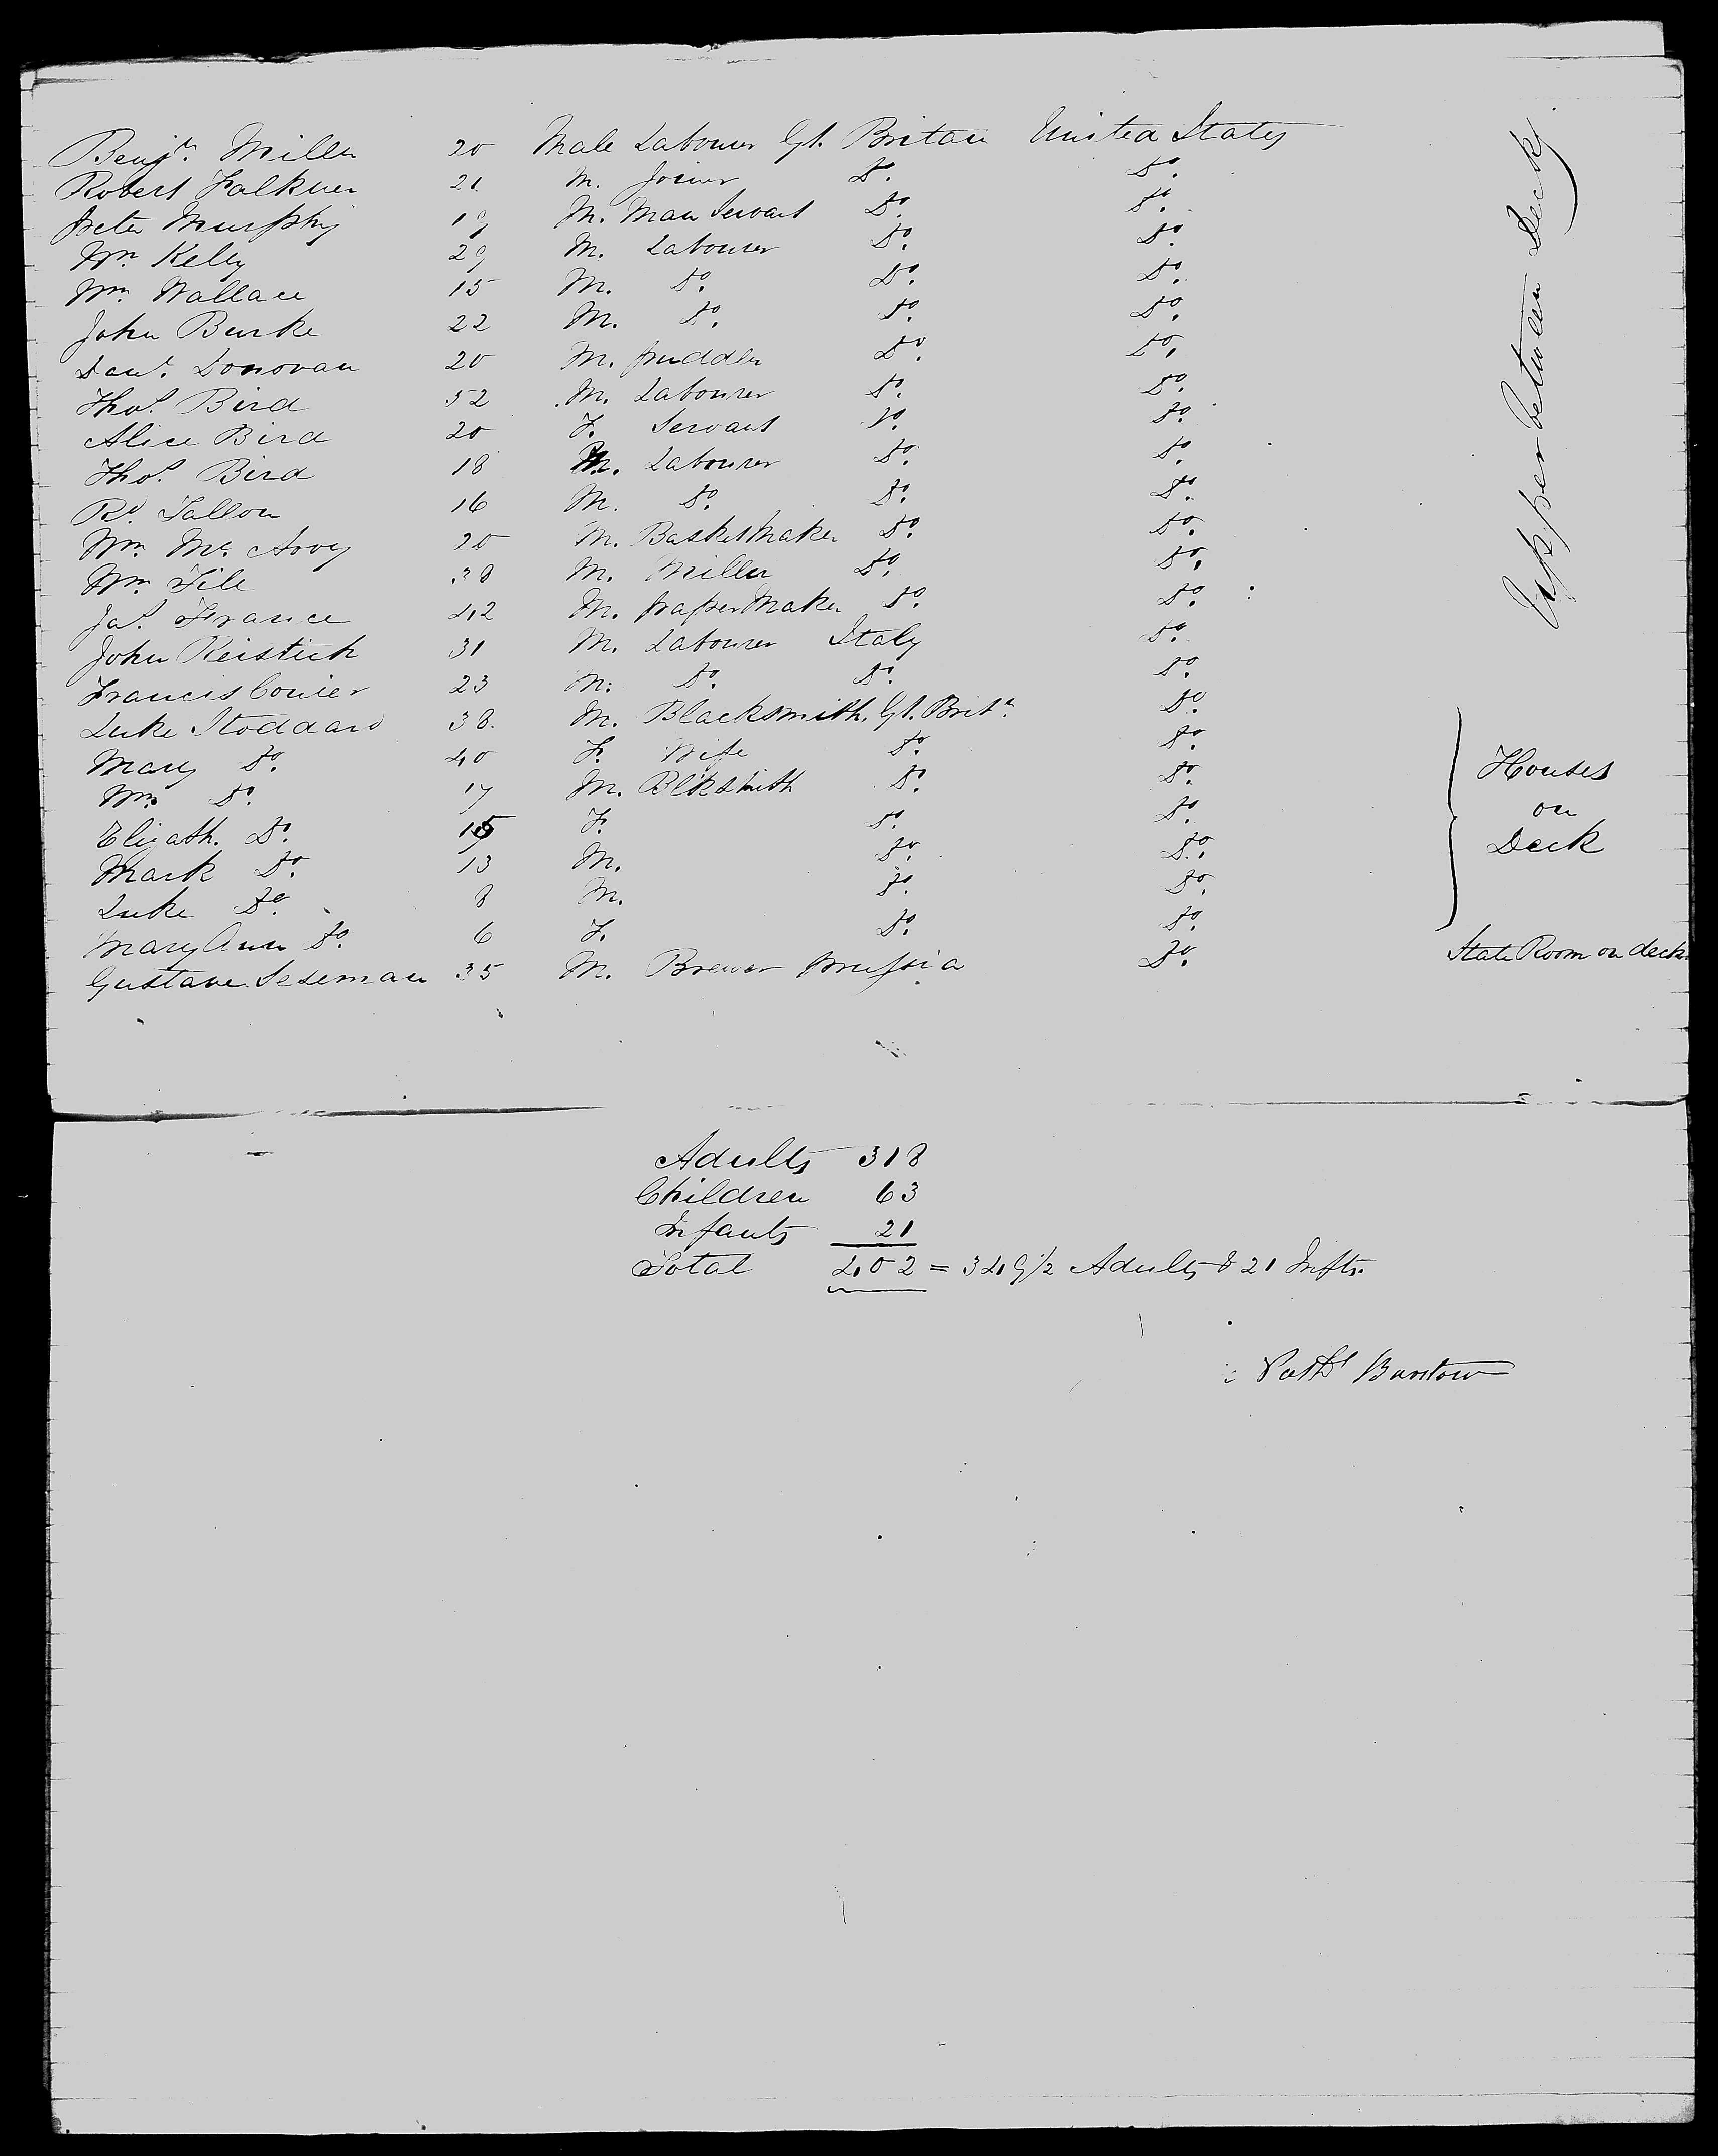 Benjn. Miller 20 Male Labourer Gt. Britain United States
Robert Falkner 21 M. Joiner Do. Do.
Peter Murphy 19 M. Man Servant Do. Do.
Wm. Kelly 29 M. Labourer Do. Do.
Wm. Wallace 15 M. Do. Do. Do.
John Burke 22 M. Do. Do. Do.
Danl. Donovan 20 M. puddler Do. Do.
Thos. Bird 52 M. Labourer Do. Do.
Alice Bird 20 F. Servant Do. Do.
Thos. Bird 18 M. Labourer Do. Do.
Rd. Tallon 16 M. Do. Do. Do.
Wm. Mc. Avoy 20 M. Basket Maker Do. Do.
Wm. File 38 M. Miller Do. Do.
Jas. France 42 M. paper Maker Do. Do.
John Reistich 31 M. Labourer Italy Do.
Francis 23 M. Do. Do. Do.
Luke Stoddard 38. M. Blacksmith. Gt. Britn. Do.
Mary Do. 40 F. Wife Do. Do.
Wm. Do. 17 M. Blksmith Do. Do.
Elizath. Do. 15 F. Do. Do.
Mark Do. 13 M. Do. Do.
Luke Do. 8 M. Do. Do.
Mary Ann Do. 6 F. Do. Do.
Gustave Seseman 35 M. Brewer Prussia Do. State Room on deck.
Upper between Decks
Houses
on
Deck
Adults 318
Children 63
Infants 21
Total 402 = 349 1/2 Adults & 21 Infts.
Barstow